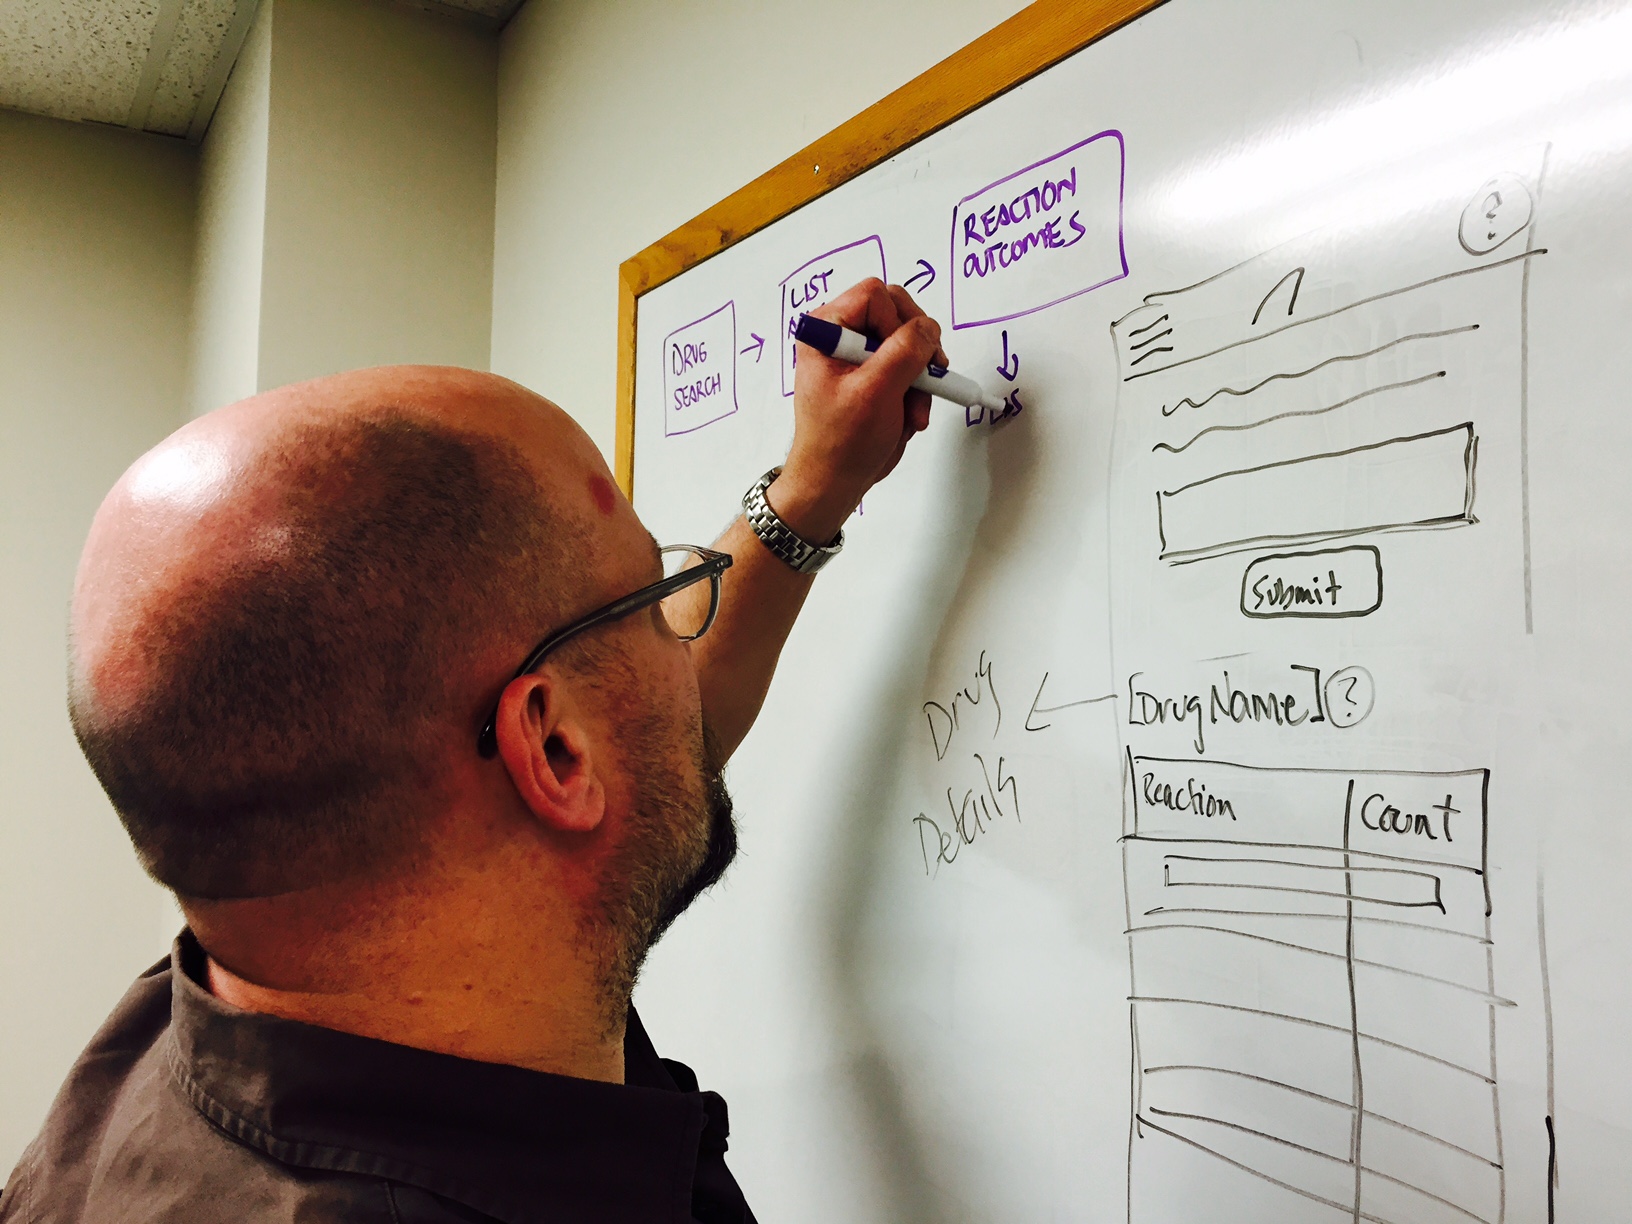 DRUG
SEARCH
LIST
REACTION
OUTCOMES
?
Submit
[DrugName] ?
Drug
Details
Reaction
Count